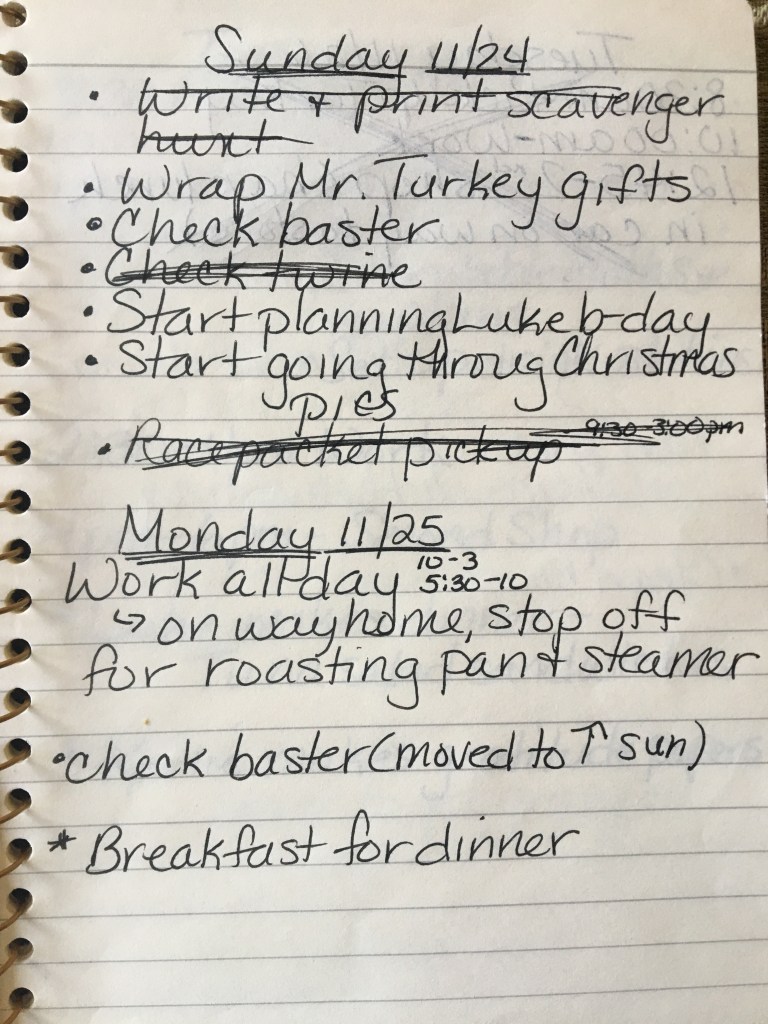 Sunday 11/24
• Write + print scavenger
hunt
• Wrap Mr. Turkey gifts
• Check baster
• Check twine
• Start planning Luke b-day
• Start going throug Christmas
pics
• Race packet pickup 9:30-3:00pm
Monday 11/25
Work all day 10-3
5:30-10
↳ on way home, stop off
for roasting pan + steamer
• check baster (moved to ↑ sun)
* Breakfast for dinner